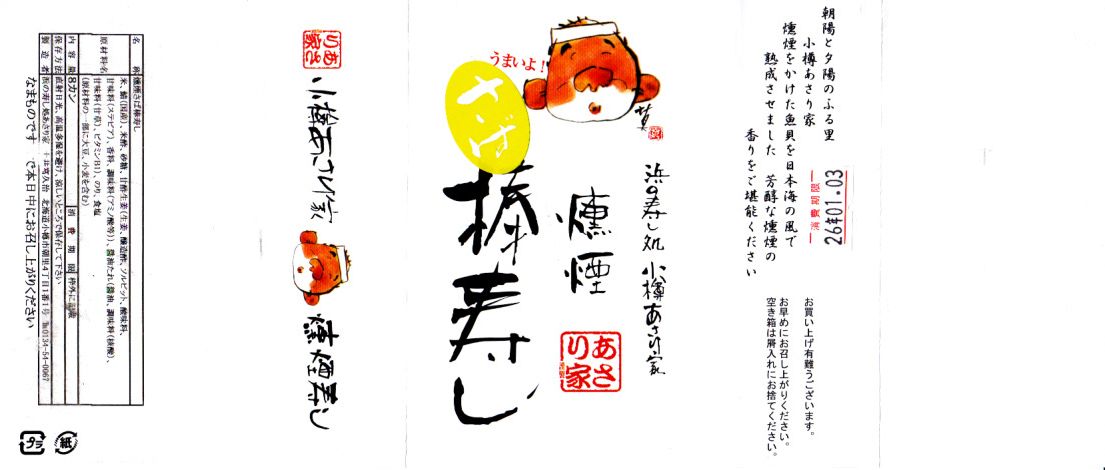 朝陽と夕陽のふる里
小樽あさり家
燻煙をかけた魚貝を日本海の風で
熟成させました 芳醇な燻煙の
香りをご堪能ください
消費期限
26年01.03
お買い上げ有難うございます。
お早めにお召し上がりください。
空き箱は屑入れにお捨てください。
うまいよ!
さば
棒寿し
燻煙
あさり家
浜の寿し処 小樽あさり家
あさり家
小樽あさり家
燻煙寿し
名 称 燻煙さば棒寿し
原材料名 米、鯖(国産)、米酢、砂糖、甘酢生姜(生姜、醸造酢、ソルビット、酸味料、
甘味料(ステビア)、香料、調味料(アミノ酸等))、醤油たれ(醤油、調味料(核酸)、
甘味料(甘草)、ビタミンB1)、のり、食塩
(原材料の一部に大豆、小麦を含む)
内容量 8カン 消費期限 枠外に記載
保存方法 直射日光、高温多湿を避け、涼しいところで保存して下さい
製造者 浜の寿し処あさり家 北海道小樽市朝里4丁目1番1号 ℡0134-54-0067
なまものです で本日中にお召し上がりください
プラ
紙